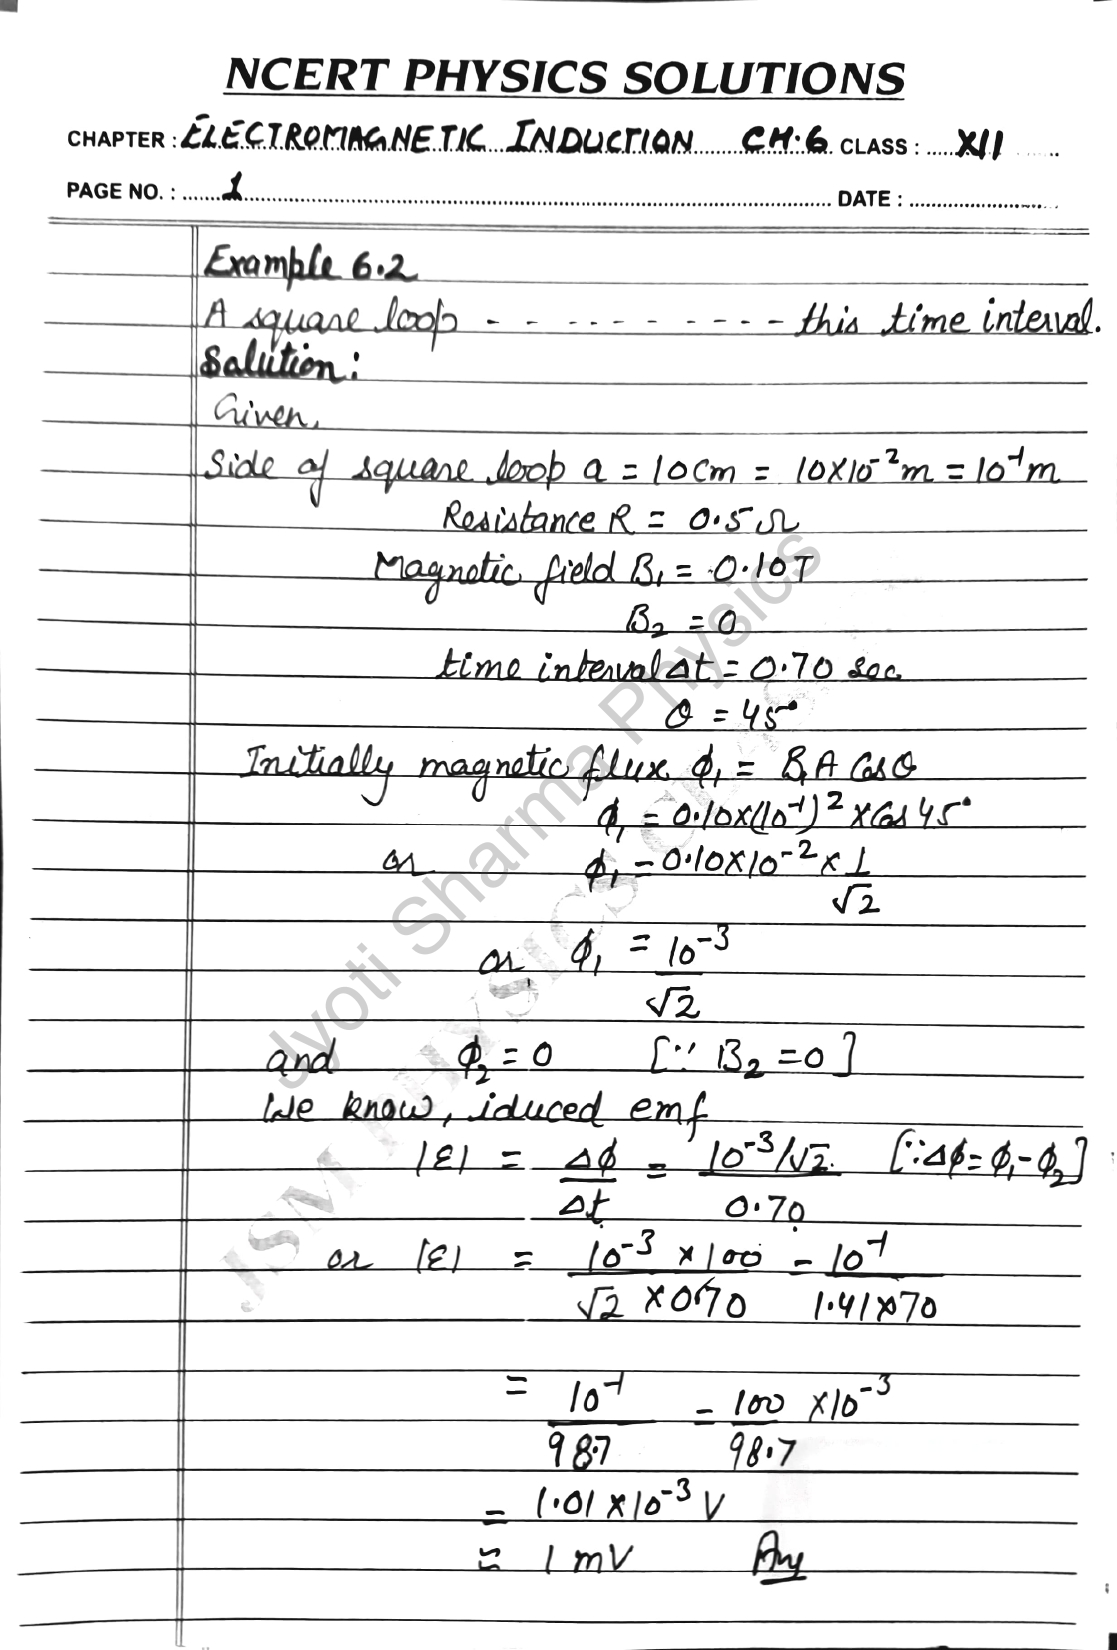 NCERT PHYSICS SOLUTIONS
CHAPTER : ELECTROMAGNETIC INDUCTION CH.6 CLASS : XII
PAGE NO. : 1 DATE :
Example 6.2
A square loop - - - - - - - - - - - this time interval.
Solution:
Given,
Side of square loop a = 10cm = 10×10⁻²m = 10⁻¹m
Resistance R = 0.5 Ω
Magnetic field B₁ = 0.10T
B₂ = 0
time interval Δt = 0.70 sec
θ = 45°
Initially magnetic flux ϕ₁ = B₁A Cosθ
ϕ₁ = 0.10×(10⁻¹)² × Cos 45°
or ϕ₁ = 0.10×10⁻² × 1/√2
or ϕ₁ = 10⁻³/√2
and ϕ₂ = 0 [∵ B₂ = 0]
We know, iduced emf
|ε| = Δϕ/Δt = 10⁻³/√2 / 0.70 [∵ Δϕ = ϕ₁ - ϕ₂]
or |ε| = 10⁻³ × 100 / √2 × 0.70 = 10⁻¹ / 1.41×70
= 10⁻¹/98.7 = 100/98.7 × 10⁻³
= 1.01 × 10⁻³ V
≈ 1 mV Ans
Jyoti Sharma Physics
JSM PHYSICS CLASSES